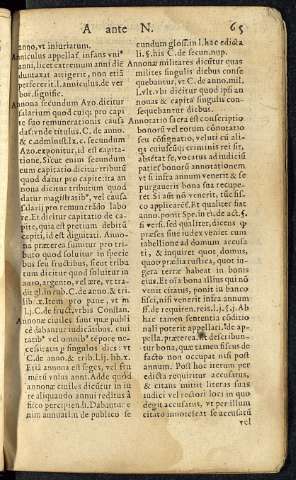 A ante N. 65
anno, vt iniuriarum.
Anniculus appellaf infans vni⁹
anni, licet extremum anni die
duntaxat attigerit, non etiā
perfecerit l. anniculus, de ver
bor. signific.
Annona secundum Azo dicitur
salarium quod cuiq; pro capi
te suo remunerationis causa
daf: vnde titulus. C. de anno.
& c. admini. lx. c. secundum
Azo. exponitur, id est capita-
tione. Sicut enim secundum
eum capitatio dicitur tributū
quod datur pro capite: ita an
nona dicitur tributum quod
datur magistratib⁹, vel causa
salarij pro remunerādo labo
re. Et dicitur capitatio de ca-
pite, quia est pretium debitū
capiti, id est dignitati. Anno-
na præterea sumitur pro tri-
buto quod soluitur in specie
bus seu fructibus, sicut tribu
tum dicitur quod soluitur in
auro, argento, vel ære, vt tra-
dit gl. in rub. C. de anno. & tri.
lib. x. Item pro pane, vt in
l. j. C. de fruct. vrbis Constan.
Annonæ ciuiles sunt quæ publi
cè dabantur iudicibus. ciui
tatib⁹ vel omnib⁹ tépore ne-
cessitatis p singulos dies: vt
C. de anno. & trib. l. ij. lib. x.
Etiā annona est seges, vel fru
métū vnius anni. Adde quòd
annonæ ciuiles dicūtur in iu
re aliquando annui reditus à
fisco percipiendi. Dabantur e
nim annuatim de publico se
cundum gloss. in l. hac edicta
li. §. his C. de secun. nup.
Annonæ militares dicūtur quas
milites singulis diebus conse
quebantur, vt C. de anno. mil.
l. vlt. vbi dicitur quòd ipsi an
nonas & capita singulis con-
sequebantur diebus.
Annotatio sacra est conscriptio
bonorū vel eorum connotatio
seu consignatio, veluti cū ali-
quis cuiuscūq; criminis rei sit,
absétat se, vocatus ad iudiciū
patitur bonorū annotationem
vt si infra annum venerit & se
purgauerit bona sua recupe-
ret Si aūt nō venerit, tūc fis-
co applicarēf. Et qualiter fiat
anno. ponit Spe. in ti. de act. §.
si versi. sed qualiter, dicens p
præses siue iudex veniet cum
tabellione ad domum accusa
ti, & inquiret quot domus,
quot prædia rustica, quot iu-
gera terræ habeat in bonis
suis. Et oīa bona illius qui nō
venit citatus, ponit in banco
fisci, nisi venerit infra annum
ff. de requiren. reis. l. j. §. j. Ab
hac tamen sententia cōditio
nali poterit appellari. Ide ap-
pella. præterea. Et describun-
tur bona, quæ tamen fiscus de
facto non occupat nisi post
annum. Post hoc iterum per
edicta requiritur accusatus,
& citans mittit literas suas
iudici vel rectori loci in quo
degit accusatus, vt per illum
citato innotescat se accusatū
vel